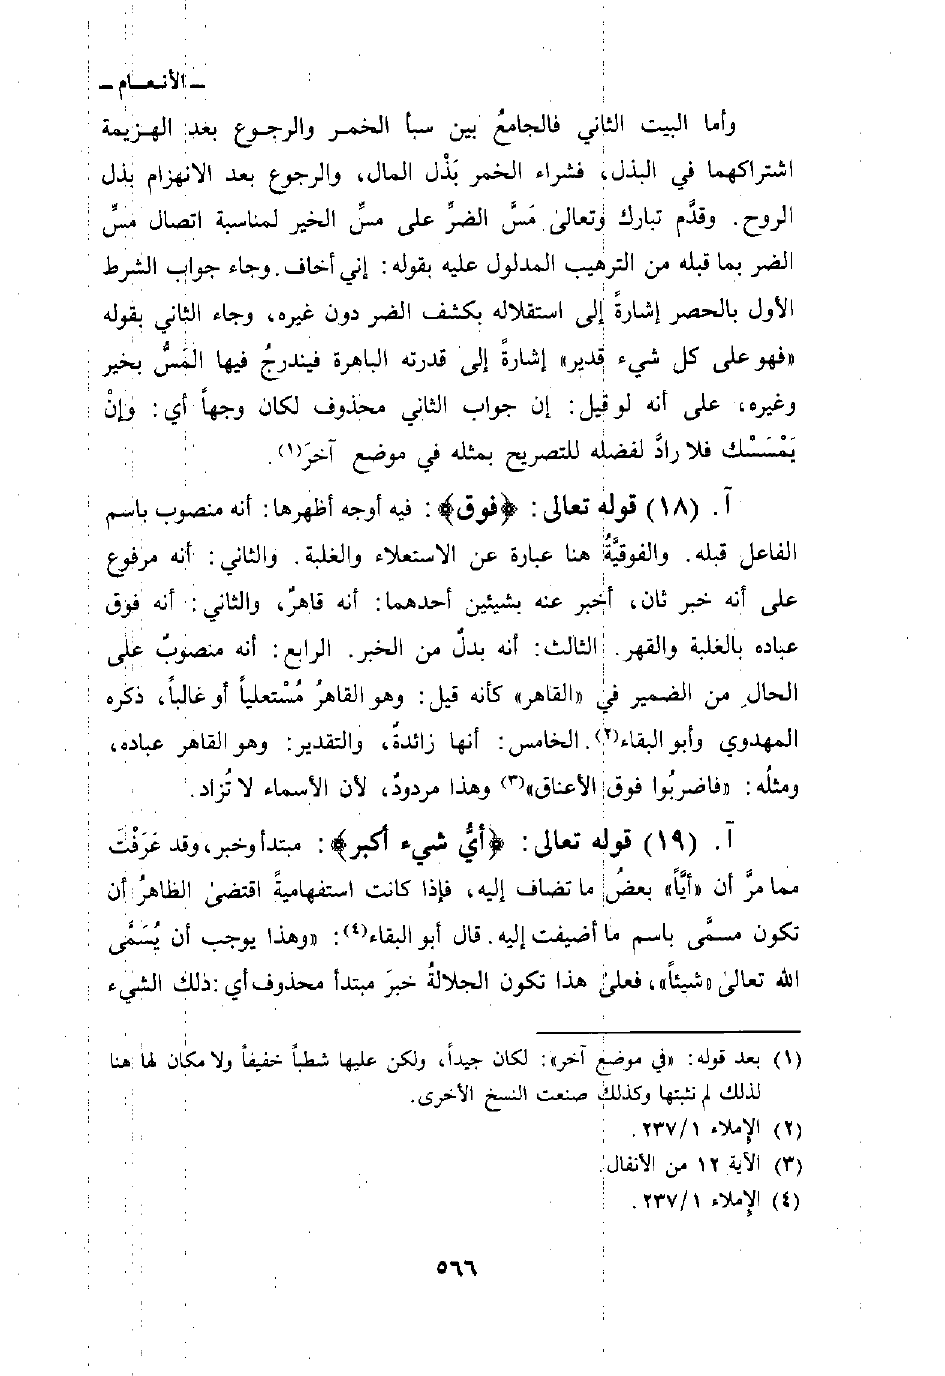 ـ الأنـعـــام ـ
وأما البيت الثاني فالجامعُ بين سبأ الخمـر والرجـوع بعد الهـزيمة
اشتراكهما في البذل، فشراء الخمر بَذْل المال، والرجوع بعد الانهزام بذل
الروح. وقدَّم تبارك وتعالىٰ مَسَّ الضرِّ على مسِّ الخير لمناسبة اتصال مسِّ
الضر بما قبله من الترهيب المدلول عليه بقوله: إني أخاف. وجاء جواب الشرط
الأول بالحصر إشارةً إلى استقلاله بكشف الضر دون غيره، وجاء الثاني بقوله
«فهو على كل شيء قدير» إشارةً إلى قدرته الباهرة فيندرجُ فيها المَسُّ بخير
وغيره، على أنه لو قيل: إن جواب الثاني محذوف لكان وجهاً أي: وإنْ
يَمْسَسْك فلا رادَّ لفضله للتصريح بمثله في موضع آخرَ(١).
آ. (١٨) قوله تعالى: ﴿فوق﴾: فيه أوجه أظهرها: أنه منصوب باسم
الفاعل قبله. والفوقيَّةُ هنا عبارة عن الاستعلاء والغلبة. والثاني: أنه مرفوع
على أنه خبر ثان، أخبر عنه بشيئين أحدهما: أنه قاهرٌ، والثاني: أنه فوق
عباده بالغلبة والقهر. الثالث: أنه بدلٌ من الخبر. الرابع: أنه منصوبٌ على
الحالِ من الضمير في «القاهر» كأنه قيل: وهو القاهرُ مُسْتعلياً أو غالباً، ذكره
المهدوي وأبو البقاء(٢). الخامس: أنها زائدةٌ، والتقدير: وهو القاهر عباده،
ومثلُه: «فاضربُوا فوق الأعناق»(٣) وهذا مردودٌ، لأن الأسماء لا تُزاد.
آ. (١٩) قوله تعالى: ﴿أيُّ شيء أكبر﴾: مبتدأ وخبر، وقد عَرَفْتَ
مما مرَّ أن «أيَّاً» بعضُ ما تضاف إليه، فإذا كانت استفهاميةً اقتضىٰ الظاهرُ أن
تكون مسمَّى باسم ما أضيفت إليه. قال أبو البقاء(٤): «وهذا يوجب أن يُسَمَّى
الله تعالىٰ «شيئاً»، فعلىٰ هذا تكون الجلالةُ خبرَ مبتدأ محذوف أي: ذلك الشيء
(١) بعد قوله: «في موضع آخر»: لكان جيداً، ولكن عليها شطباً خفيفاً ولا مكان لها هنا
لذلك لم نثبتها وكذلك صنعت النسخ الأخرى.
(٢) الإملاء ٢٣٧/١.
(٣) الآية ١٢ من الأنفال.
(٤) الإملاء ٢٣٧/١.
٥٦٦